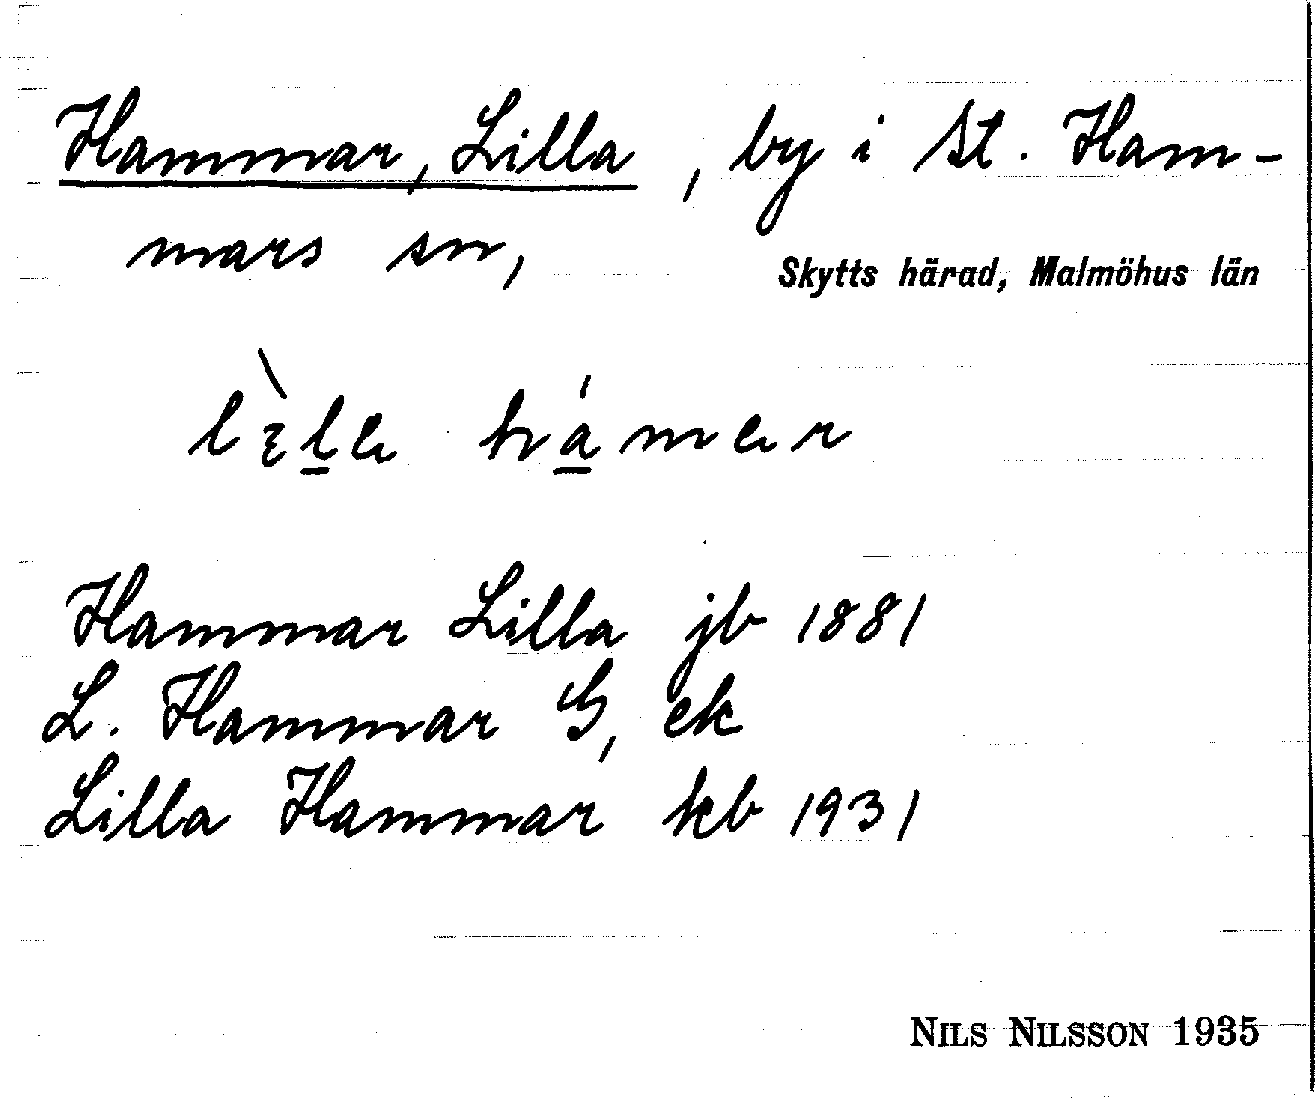 Hammar, Lilla, by i St. Ham-
mars sn,
Skytts härad, Malmöhus län
Hammar Lilla jb 1881
L. Hammar G, ek
Lilla Hammar kb 1931
NILS NILSSON 1935